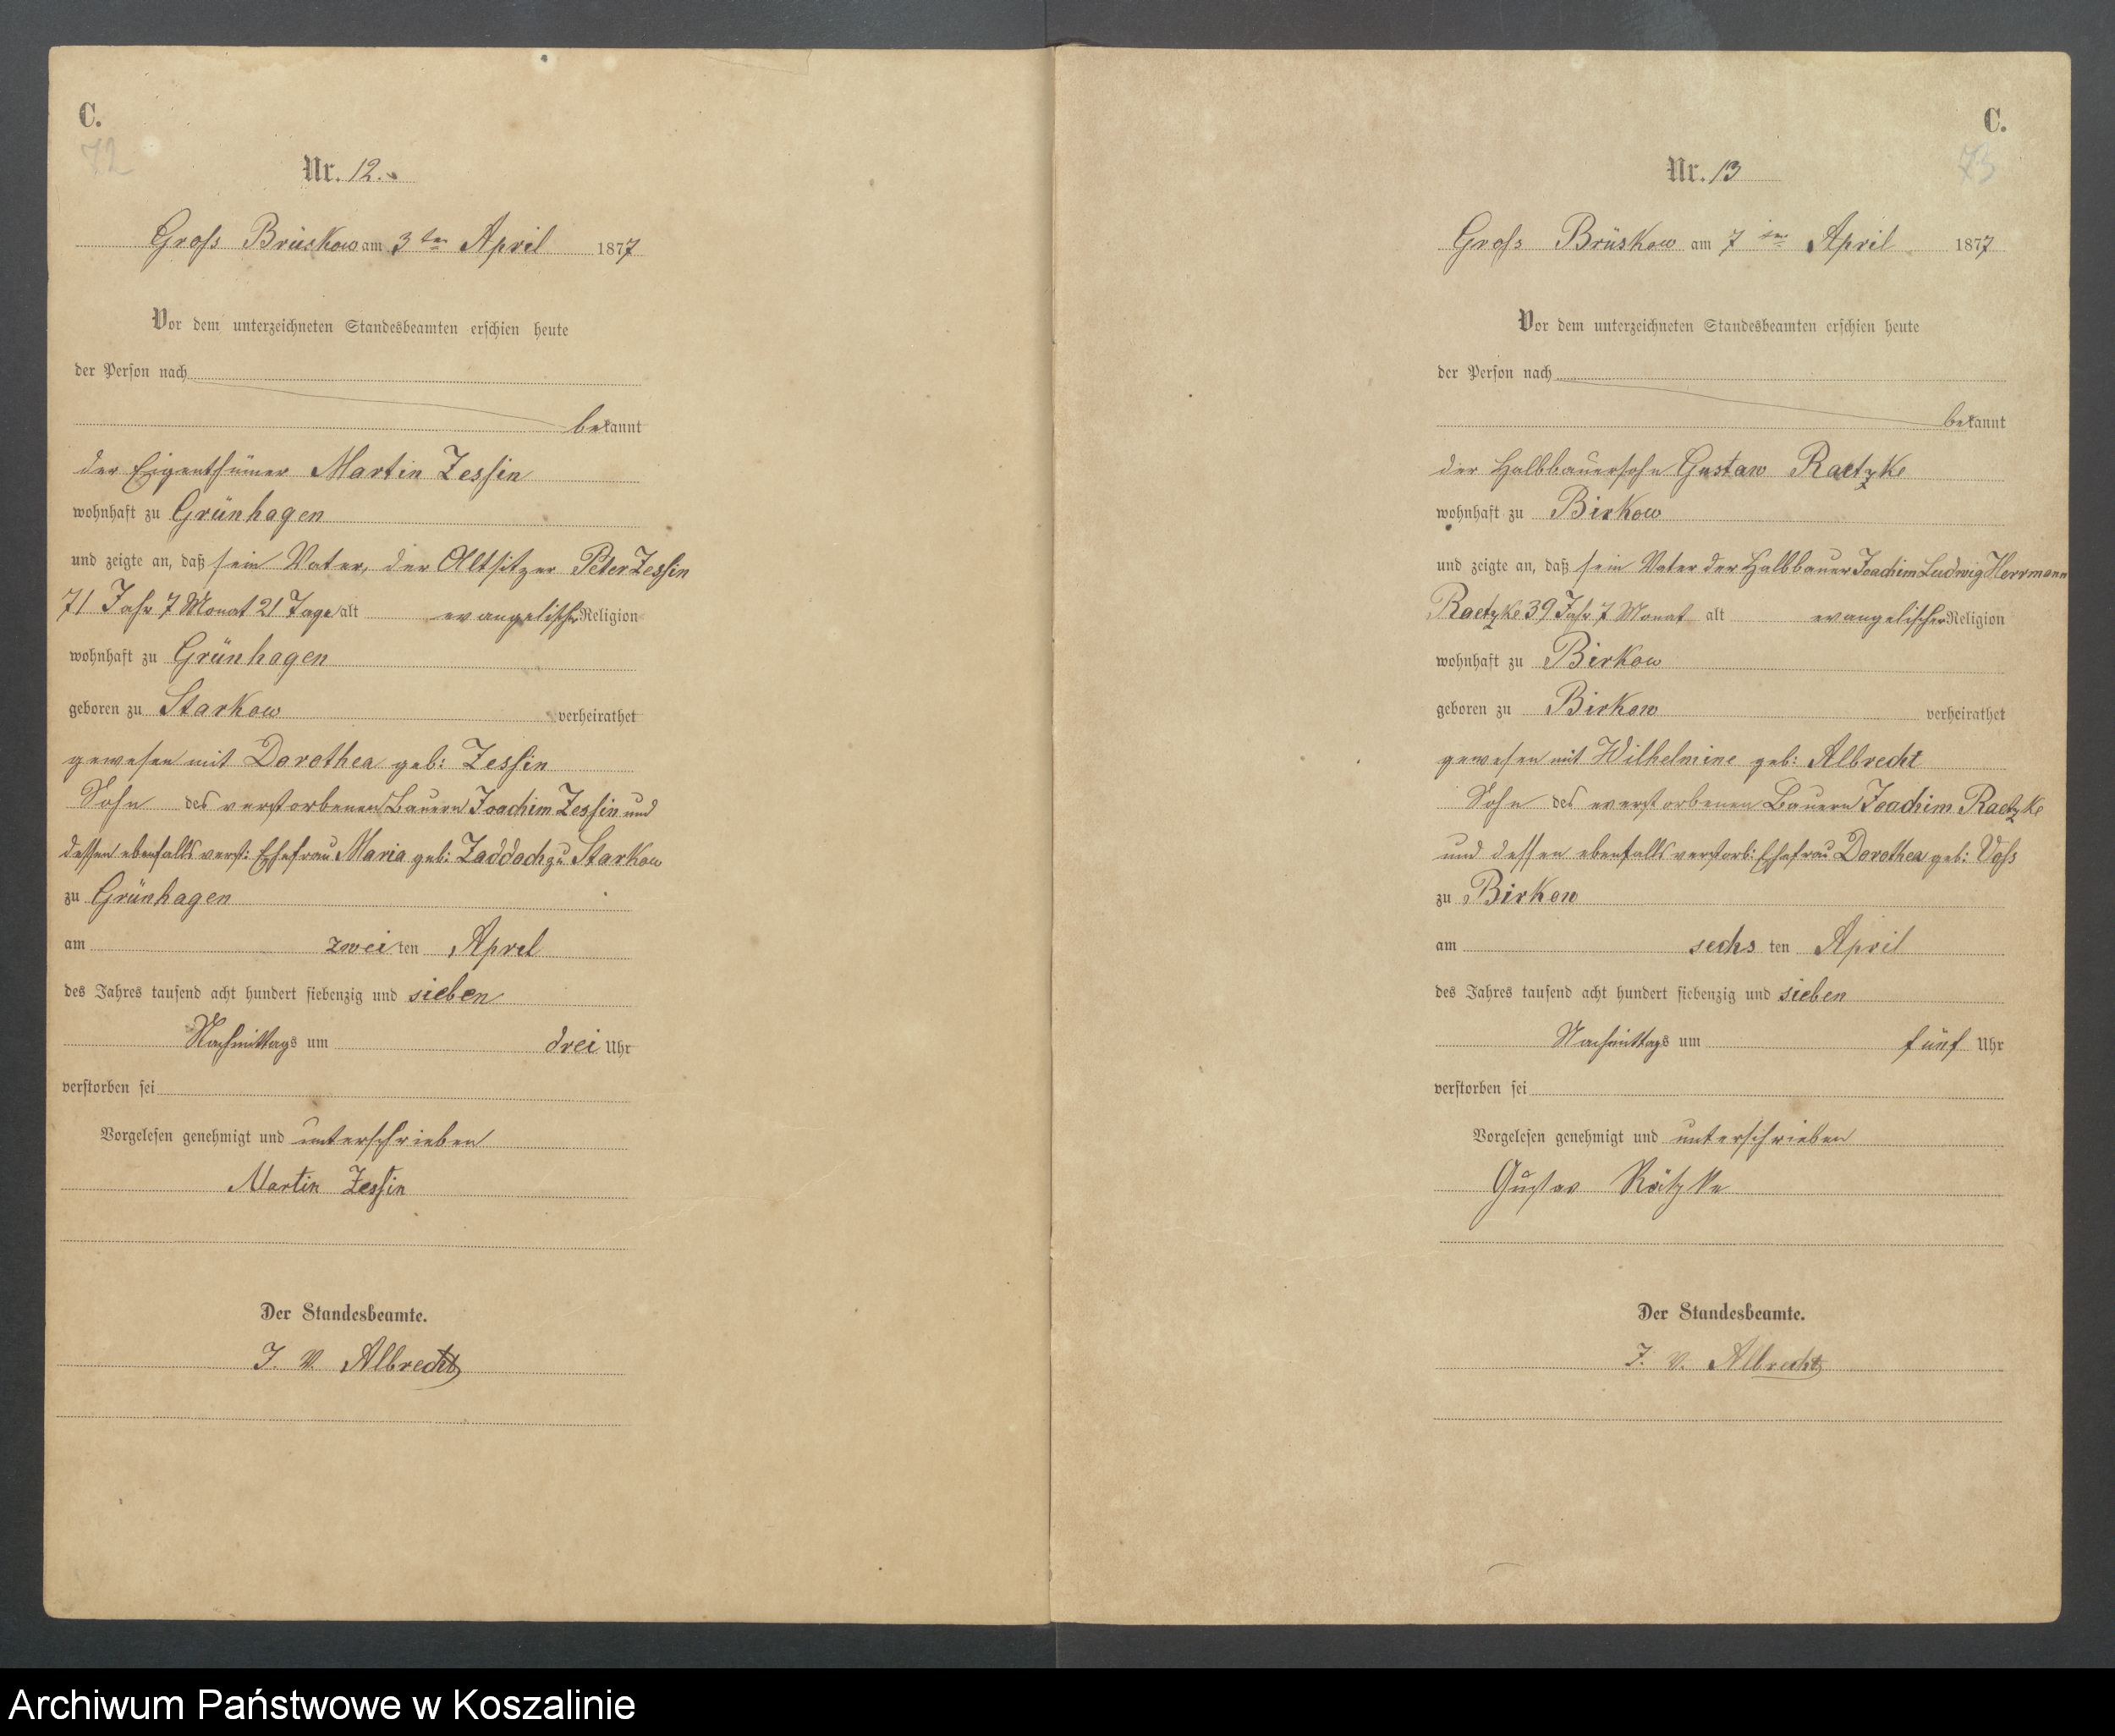 C.
72
Nr. 12.
Groß Brüskow am 3ten April 1877
Vor dem unterzeichneten Standesbeamten erschien heute
der Person nach
bekannt
der Eigenthümer Martin Zessin
wohnhaft zu Grünhagen
und zeigte an, daß sein Vater, der Altsitzer Peter Zessin
71 Jahr 7 Monat 21 Tage alt evangelischer Religion
wohnhaft zu Grünhagen
geboren zu Starkow verheirathet
gewesen mit Dorothea geb: Zessin
Sohn des verstorbenen Bauern Joachim Zessin und
dessen ebenfalls verst: Ehefrau Maria geb: Zaddach zu Starkow
zu Grünhagen
am zwei ten April
des Jahres tausend acht hundert siebenzig und sieben
Nachmittags um drei Uhr
verstorben sei
Vorgelesen genehmigt und unterschrieben
Martin Zessin
Der Standesbeamte.
J. V. Albrecht
C.
73
Nr. 13
Groß Brüskow am 7 ten April 1877
Vor dem unterzeichneten Standesbeamten erschien heute
der Person nach
bekannt
der Halbbauersohn Gustav Raetzke
wohnhaft zu Birkow
und zeigte an, daß sein Vater der Halbbauer Joachim Ludwig Herrmann
Raetzke 39 Jahr 7 Monat alt evangelischer Religion
wohnhaft zu Birkow
geboren zu Birkow verheirathet
gewesen mit Wilhelmine geb: Albrecht
Sohn des verstorbenen Bauern Joachim Raetzke
und dessen ebenfalls verstorb: Ehefrau Dorothea geb: Voß
zu Birkow
am sechs ten April
des Jahres tausend acht hundert siebenzig und sieben
Nachmittags um fünf Uhr
verstorben sei
Vorgelesen genehmigt und unterschrieben
Gustav Rätzke
Der Standesbeamte.
J. V. Albrecht
Archiwum Państwowe w Koszalinie